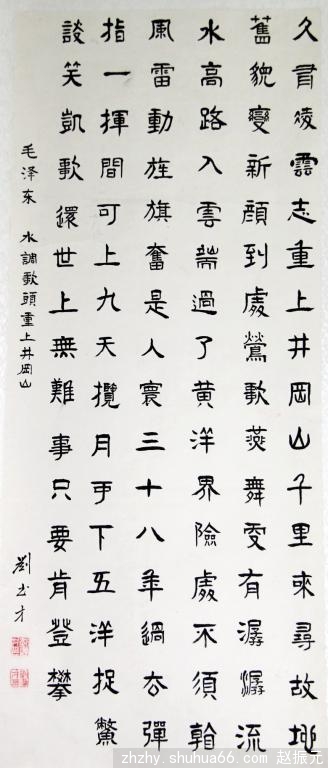 久有凌雲志重上井岡山千里來尋故地
舊貌變新顏到處鶯歌燕舞更有潺潺流
水高路入雲端過了黃洋界險處不須看
風雷動旌旗奮是人寰三十八年過去彈
指一揮間可上九天攬月可下五洋捉鱉
談笑凱歌還世上無難事只要肯登攀
毛泽东 水調歌頭重上井岡山
劉书才
zhzhy.shuhua66.com 赵振元